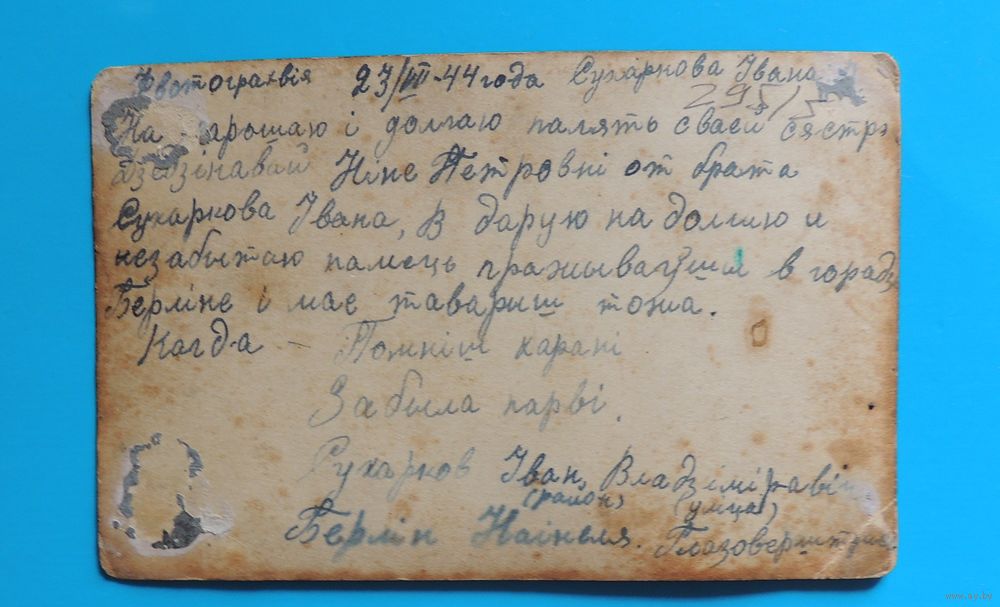 Фвотограхвія 23/III-44 года Сухаркова Івана
295/
На харошаю і долгаю палять сваей сястрэ
Дзедзінавай Ніне Петровні от брата
Сухаркова Івана, В дарую на долгию и
незабытаю памець пражываўшы в горадзе
Берліне і мае тавариш тожа.
Когда - Помніш харані
Забыла парві.
Сухарков Іван, Владзіміравіч
(район) (улица)
Берлін Наінеля.